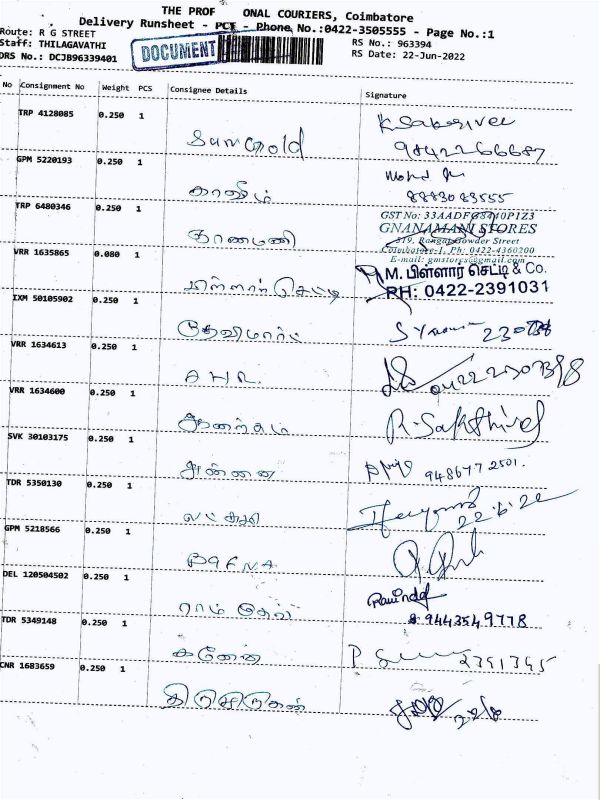 THE PROF ONAL COURIERS, Coimbatore
Delivery Runsheet - PCT - Phone No.:0422-3505555 - Page No.:1
Route: R G STREET
Staff: THILAGAVATHI
DRS No.: DCJB96339401
DOCUMENT
RS No.: 963394
RS Date: 22-Jun-2022
No Consignment No Weight PCS Consignee Details Signature
TRP 4128085 0.250 1 Sungold
9842266687
GPM 5220193 0.250 1 காஸிம்
8883083555
TRP 6480346 0.250 1 ஞானமணி
GST No: 33AADFG8440P1Z3
GNANAMANI STORES
519, Rangai Gowder Street
Coimbatore-1, Ph: 0422-4360200
E-mail: gmstores@gmail.com
VRR 1635865 0.080 1 பிள்ளார் செட்டி
M. பிள்ளார் செட்டி & Co.
PH: 0422-2391031
IXM 50105902 0.250 1 தேவிமார்ட்
VRR 1634613 0.250 1 AHR.
VRR 1634600 0.250 1
R. Sakthivel
SVK 30103175 0.250 1 அன்னை
9486772501.
TDR 5350130 0.250 1 லட்சுமி
22.6.22
GPM 5218566 0.250 1 BAFNA
DEL 120504502 0.250 1 ராம் தேவ்
Ravindar
9443549778
TDR 5349148 0.250 1 கணேஷ்
2391395
CNR 1683659 0.250 1 திருமுருகன்